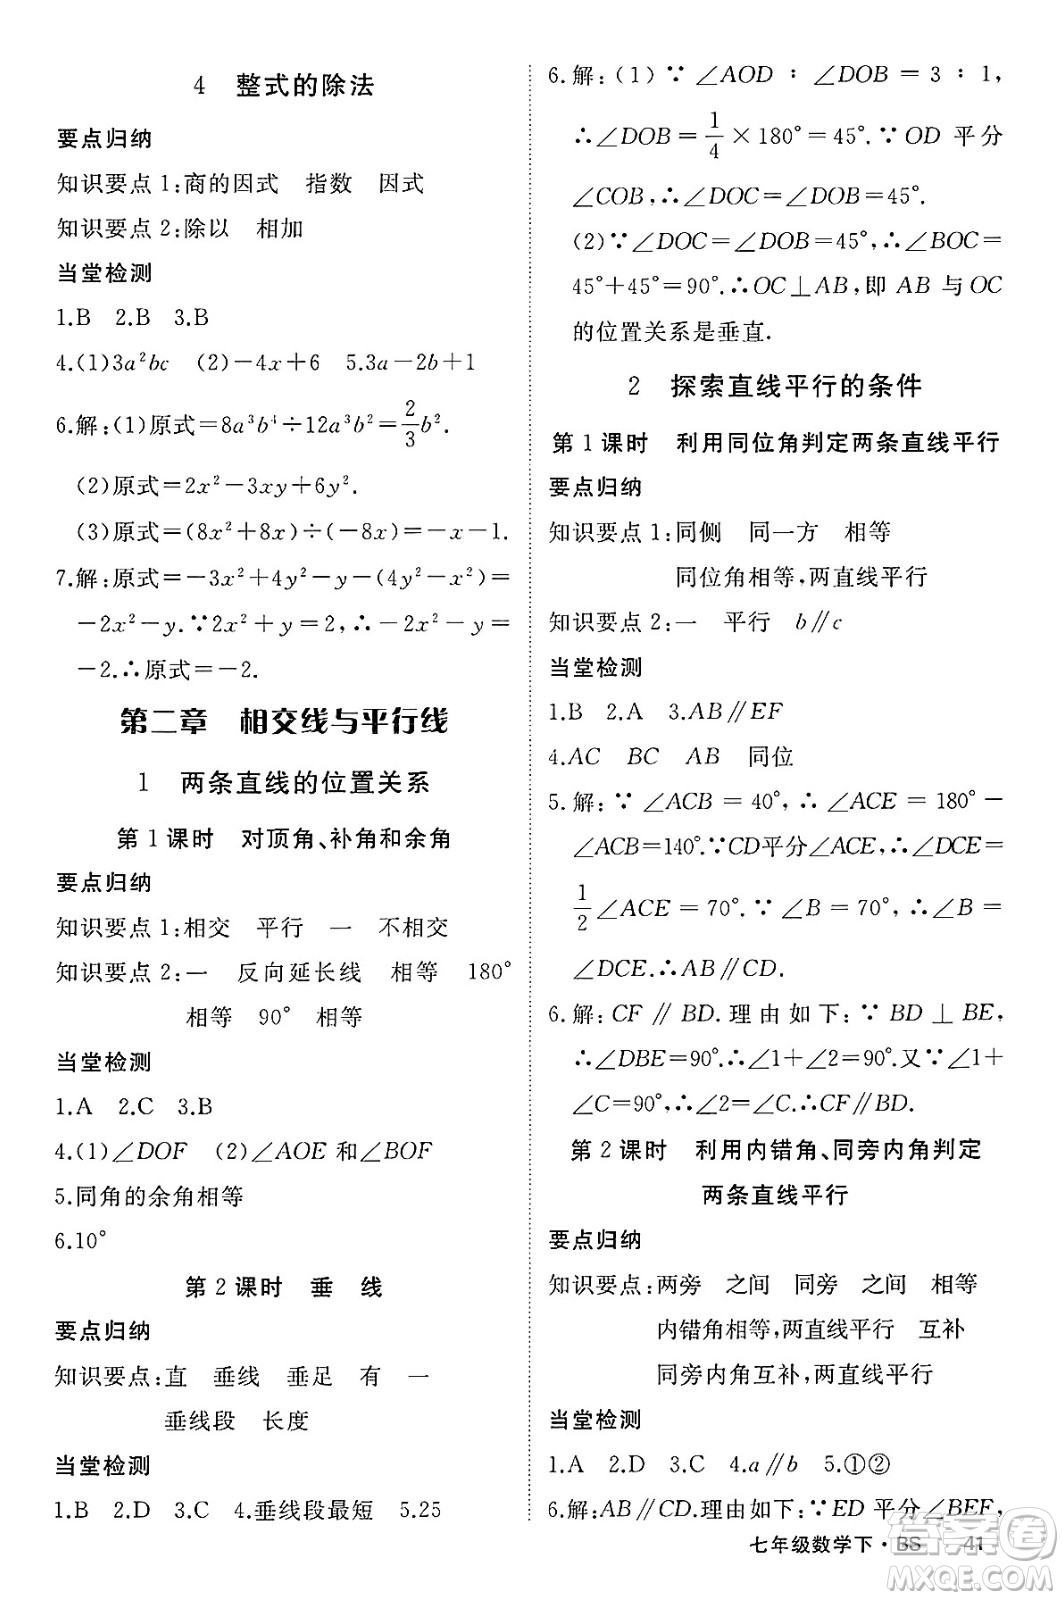 4 整式的除法
要点归纳
知识要点1:商的因式 指数 因式
知识要点2:除以 相加
当堂检测
1.B 2.B 3.B
4.(1)3a²bc (2)-4x+6 5.3a-2b+1
6.解:(1)原式=8a³b⁴÷12a³b²=2/3b².
(2)原式=2x²-3xy+6y².
(3)原式=(8x²+8x)÷(-8x)=-x-1.
7.解:原式=-3x²+4y²-y-(4y²-x²)=
-2x²-y.∵2x²+y=2,∴-2x²-y=
-2.∴原式=-2.
第二章 相交线与平行线
1 两条直线的位置关系
第1课时 对顶角、补角和余角
要点归纳
知识要点1:相交 平行 一 不相交
知识要点2:一 反向延长线 相等 180°
相等 90° 相等
当堂检测
1.A 2.C 3.B
4.(1)∠DOF (2)∠AOE和∠BOF
5.同角的余角相等
6.10°
第2课时 垂 线
要点归纳
知识要点:直 垂线 垂足 有 一
垂线段 长度
当堂检测
1.B 2.D 3.C 4.垂线段最短 5.25
6.解:(1)∵∠AOD∶∠DOB=3∶1,
∴∠DOB=1/4×180°=45°.∵OD平分
∠COB,∴∠DOC=∠DOB=45°.
(2)∵∠DOC=∠DOB=45°,∴∠BOC=
45°+45°=90°.∴OC⊥AB,即AB与OC
的位置关系是垂直.
2 探索直线平行的条件
第1课时 利用同位角判定两条直线平行
要点归纳
知识要点1:同侧 同一方 相等
同位角相等,两直线平行
知识要点2:一 平行 b∥c
当堂检测
1.B 2.A 3.AB∥EF
4.AC BC AB 同位
5.解:∵∠ACB=40°,∴∠ACE=180°-
∠ACB=140°.∵CD平分∠ACE,∴∠DCE=
1/2∠ACE=70°.∵∠B=70°,∴∠B=
∠DCE.∴AB∥CD.
6.解:CF∥BD.理由如下:∵BD⊥BE,
∴∠DBE=90°.∴∠1+∠2=90°.又∵∠1+
∠C=90°,∴∠2=∠C.∴CF∥BD.
第2课时 利用内错角、同旁内角判定
两条直线平行
要点归纳
知识要点:两旁 之间 同旁 之间 相等
内错角相等,两直线平行 互补
同旁内角互补,两直线平行
当堂检测
1.A 2.D 3.C 4.a∥b 5.①②
6.解:AB∥CD.理由如下:∵ED平分∠BEF,
七年级数学下·BS 41
答案圈
MXQE.COM